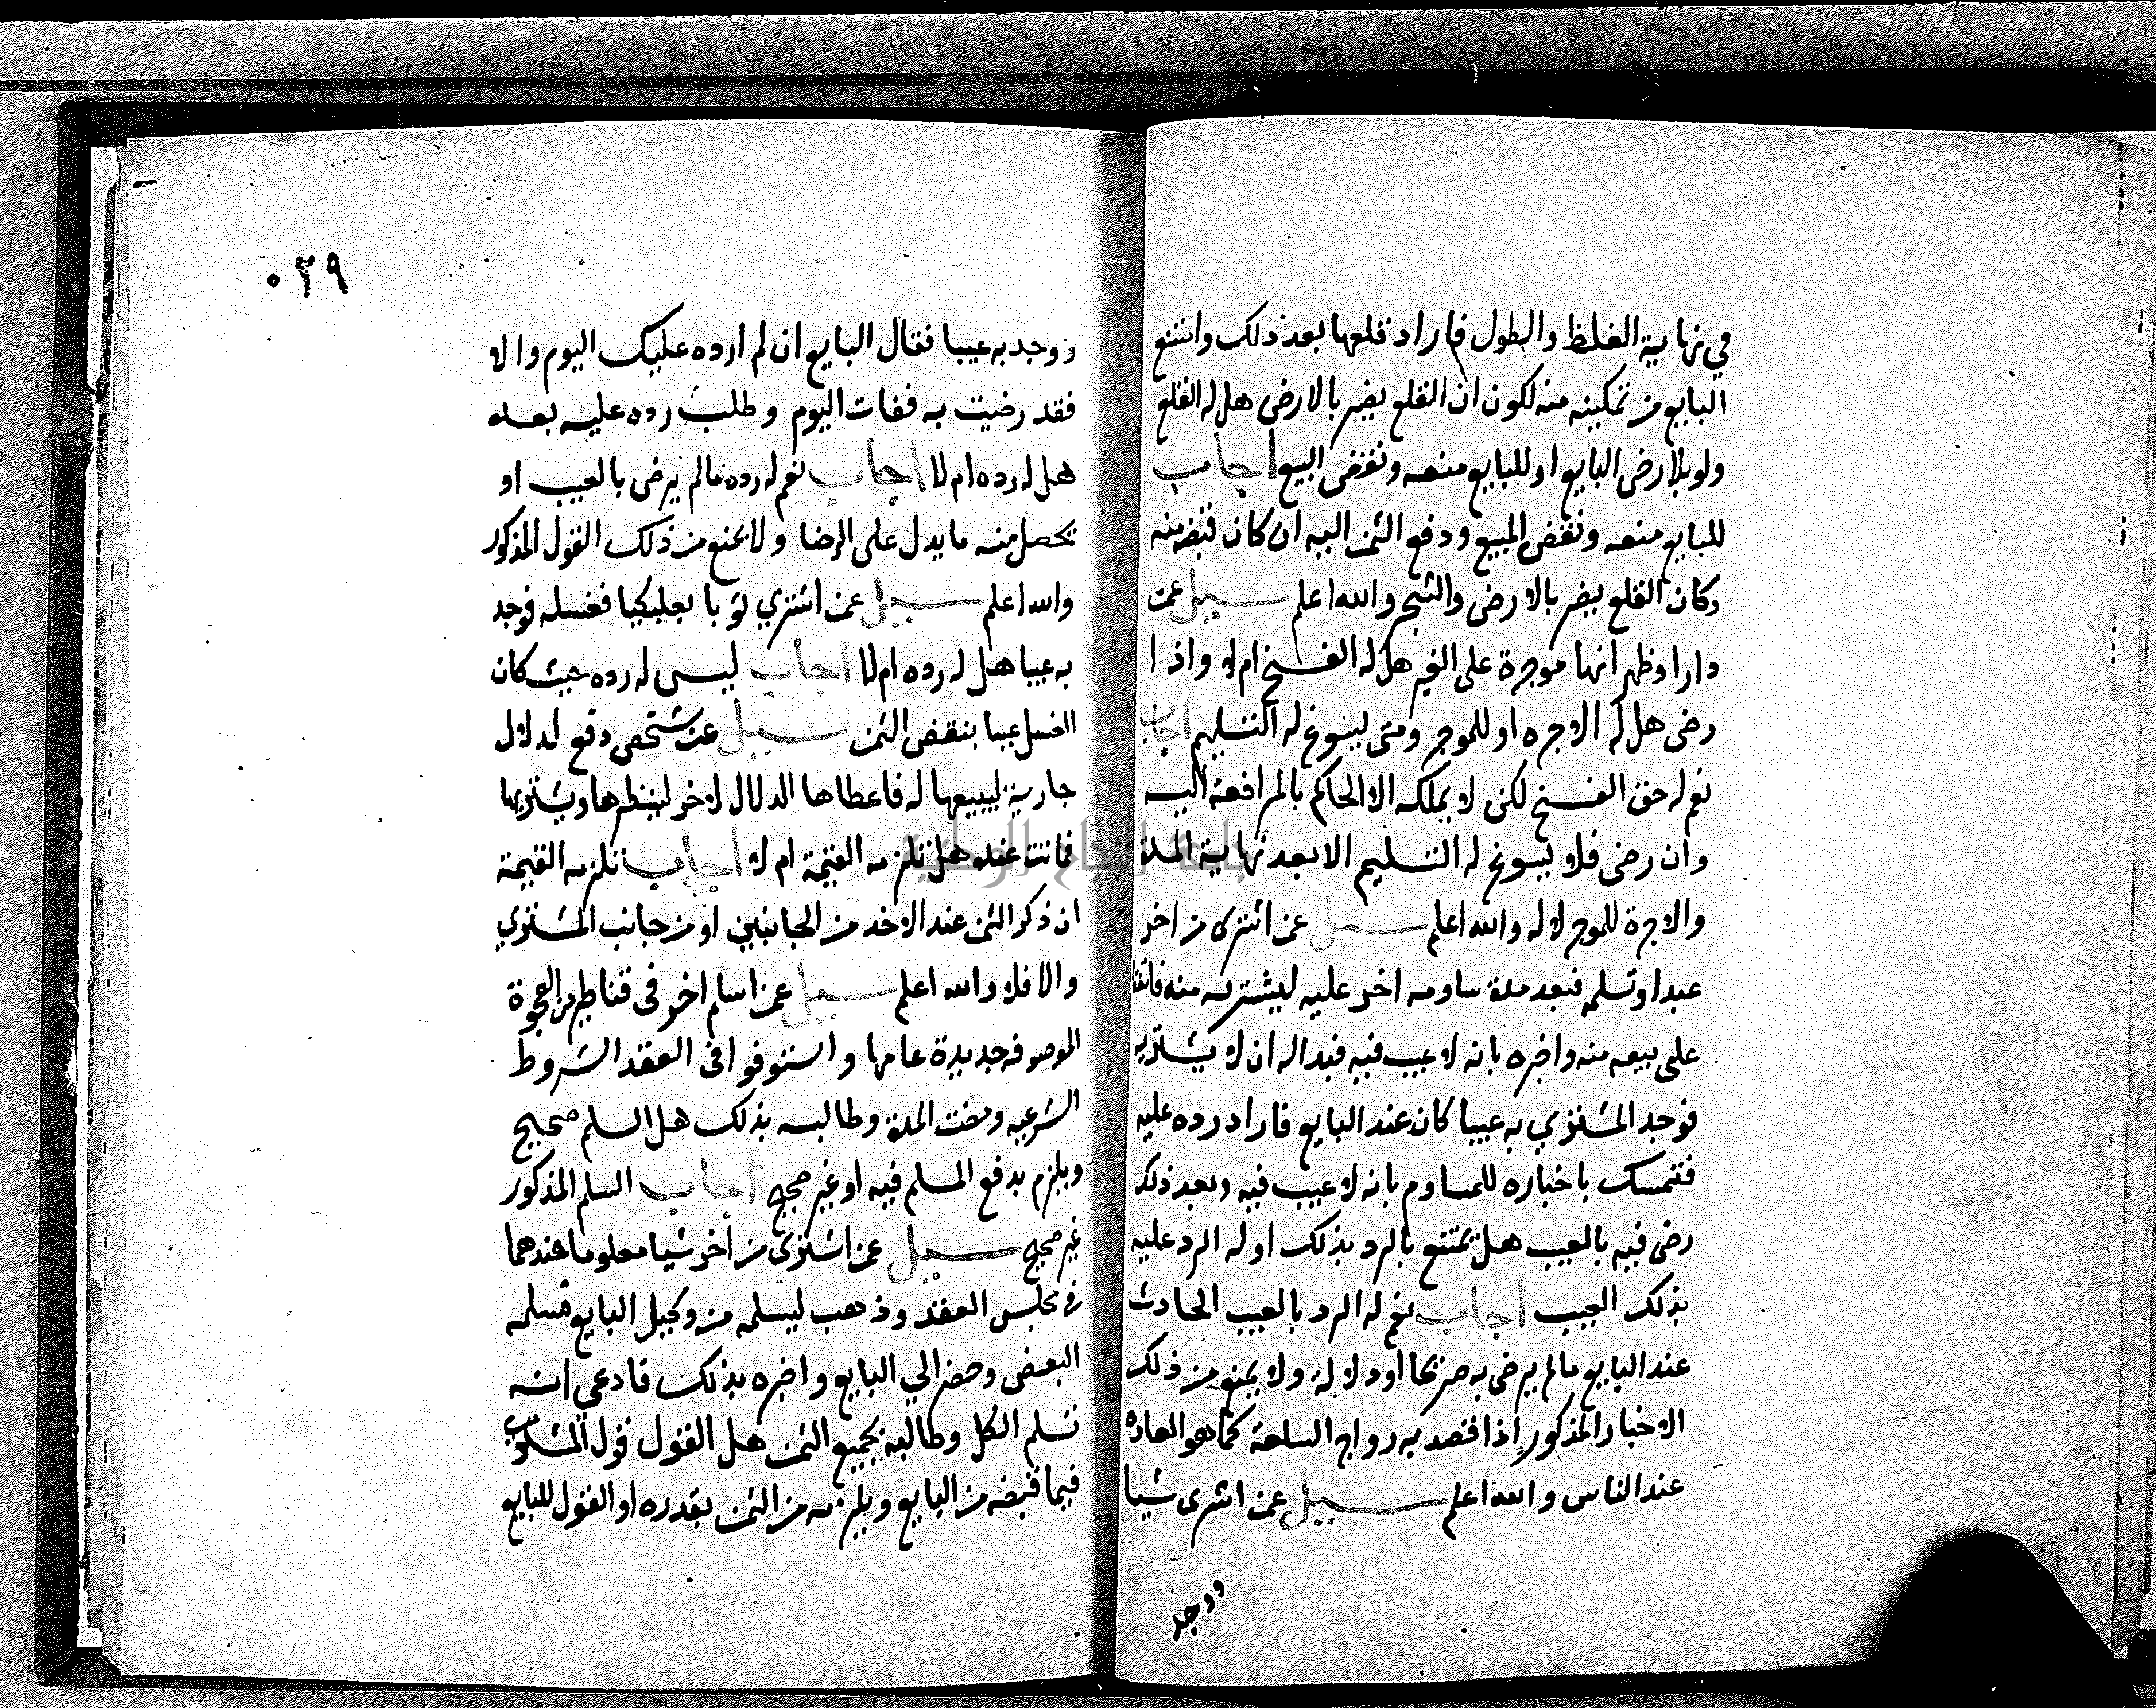 في نهاية الغلظ والطول فاراد قلعها بعد ذلك وامتنع
البايع من تمكينه منه لكون ان القلع يضر بالارض هل له القلع
ولو بلا رضى البايع او للبايع منعه ونقض البيع اجاب
للبايع منعه ونقض المبيع ودفع الثمن اليه ان كان قبضه منه
وكان القلع يضر بالارض والشجر والله اعلم سيل عمن
دارا وظهر انها موجرة على الغير هل له الفسخ ام لا واذا
رضى هل له الاجره او للموجر ومتى يسوغ له التسليم اجاب
نعم له حق الفسخ لكن لا يملكه الا الحاكم بالمرافعة اليه
وان رضى فلا يسوغ له التسليم الا بعد نهاية المدة
والاجرة للموجر لا له والله اعلم سيل عمن اشترى من اخر
عبدا وتسلمه فبعد مدة ساومه اخر عليه ليشتريه منه فاتفقا
على بيعه منه واخبره بانه لا عيب فيه فبدا له ان لا يشتريه
فوجد المشتري به عيبا كان عند البايع فاراد رده عليه
فتمسك باخباره للمساوم بانه لا عيب فيه وبعد ذلك
رضى فيه بالعيب هل يمتنع بالرد بذلك او له الرد عليه
بذلك العيب اجاب نعم له الرد بالعيب الحادث
عند البايع مالم يرضى به صريحا او دلالة ولا يمنع من ذلك
الاخبار المذكور اذا قصد به رواج السلعة كما هو العاده
عند الناس والله اعلم سيل عمن اشرى شيا
ووجد
٠٣٩
ووجد به عيبا فقال البايع ان لم ارده عليك اليوم والا
فقد رضيت به ففات اليوم وطلب رده عليه بعده
هل له رده ام لا اجاب نعم له رده مالم يرضى بالعيب او
يحصل منه ما يدل على الرضا ولا يمنع من ذلك القول المذكور
والله اعلم سيل عمن اشتري ثوبا بعلبكيا فغسله فوجد
به عيبا هل له رده ام لا اجاب ليس له رده حيث كان
الغسل عيبا ينقض الثمن سيل عن شخص دفع لدلال
جارية ليبيعها له فاعطاها الدلال لاخر لينظرها ويشتريها
فماتت عنده هل تلزمه القيمة ام لا اجاب تلزمه القيمة
ان ذكر الثمن عند الاخد من الجانبين او من جانب المشتري
والا فلا والله اعلم سيل عمن اسلم اخر في قناطير من العجوة
الموصوفه جديدة عامها واستوفوا في العقد الشروط
الشرعيه ومضت المدة وطالبه بذلك هل السلم صحيح
ويلزم بدفع المسلم فيه او غير صحيح اجاب السلم المذكور
غير صحيح سيل عمن اشترى من اخر شيا معلوما عندهما
في مجلس العقد وذهب ليسلمه من وكيل البايع فسلمه
البعض وحضر الي البايع واخبره بذلك فادعى انه
تسلم الكل وطالبه بجميع الثمن هل القول قول المشتري
فيما قبضه من البايع ويلزمه من الثمن بقدره او القول للبايع